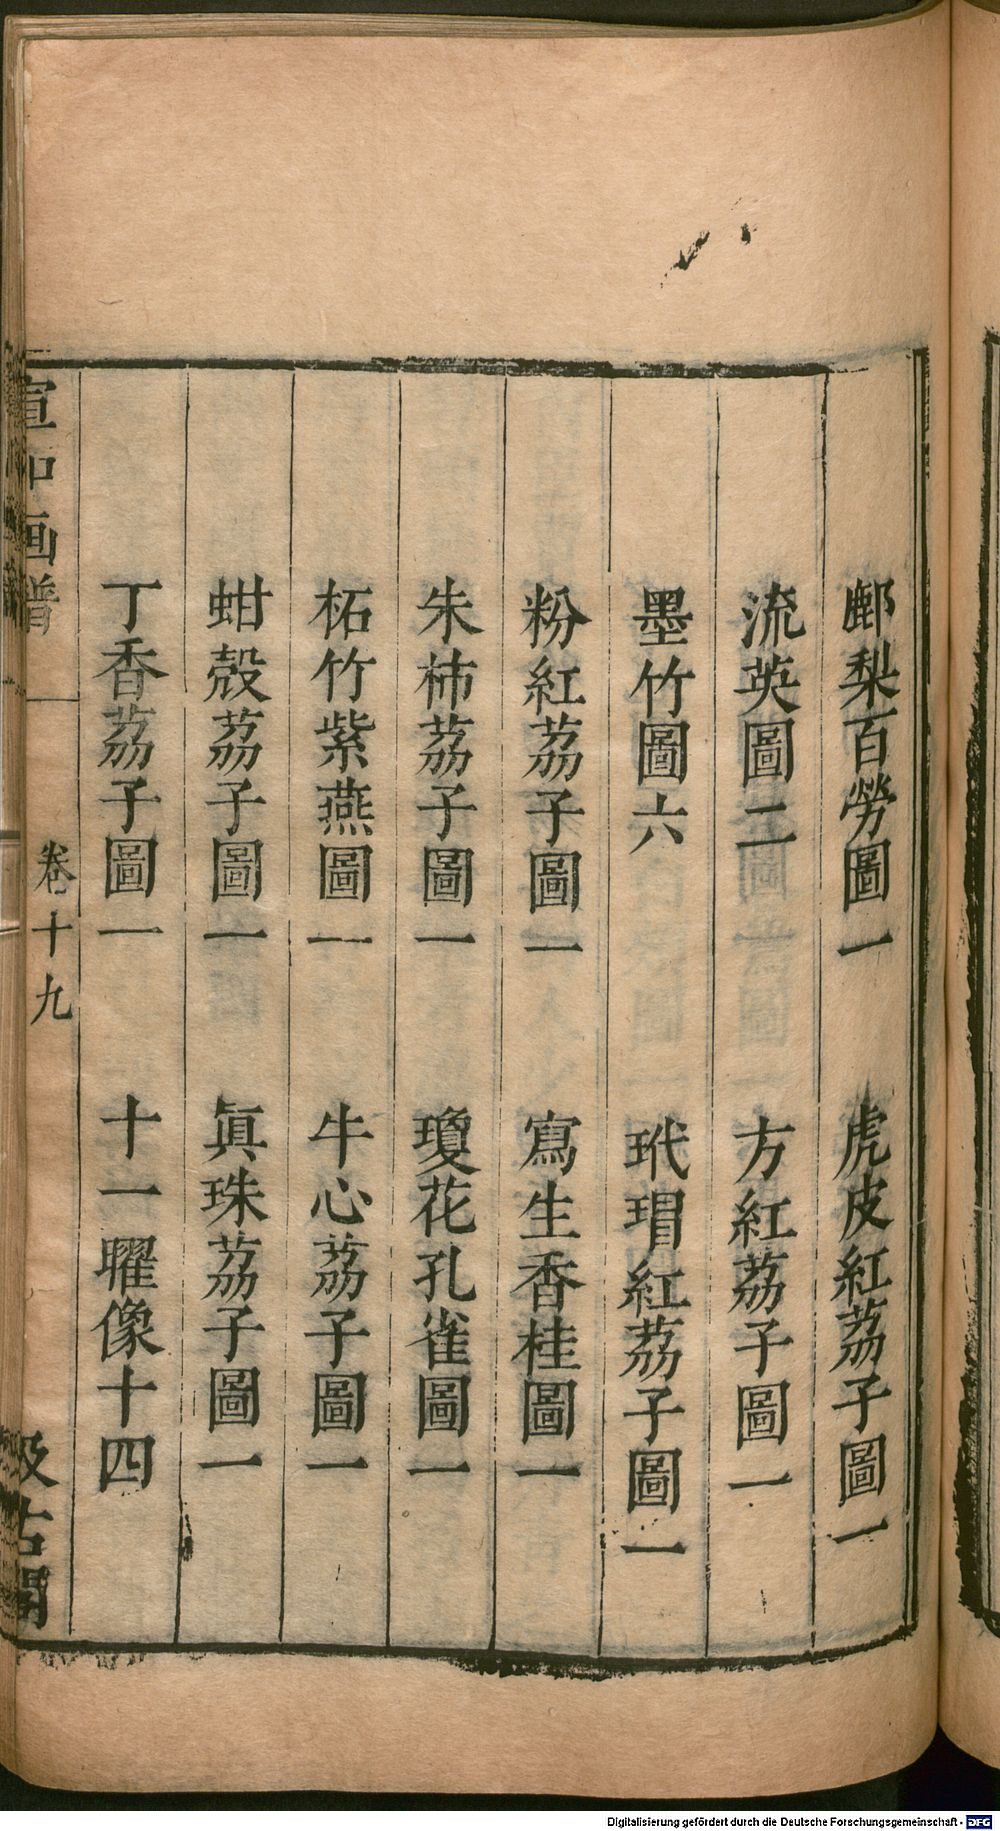 鄜梨百勞圖一　虎皮紅茘子圖一
流英圖二　方紅茘子圖一
墨竹圖六　玳瑁紅茘子圖一
粉紅茘子圖一　寫生香桂圖一
朱柿茘子圖一　瓊花孔雀圖一
柘竹紫燕圖一　牛心茘子圖一
蚶殼茘子圖一　眞珠茘子圖一
丁香茘子圖一　十一曜像十四
宣和画譜　卷十九　汲古閣
Digitalisierung gefördert durch die Deutsche Forschungsgemeinschaft - DFG